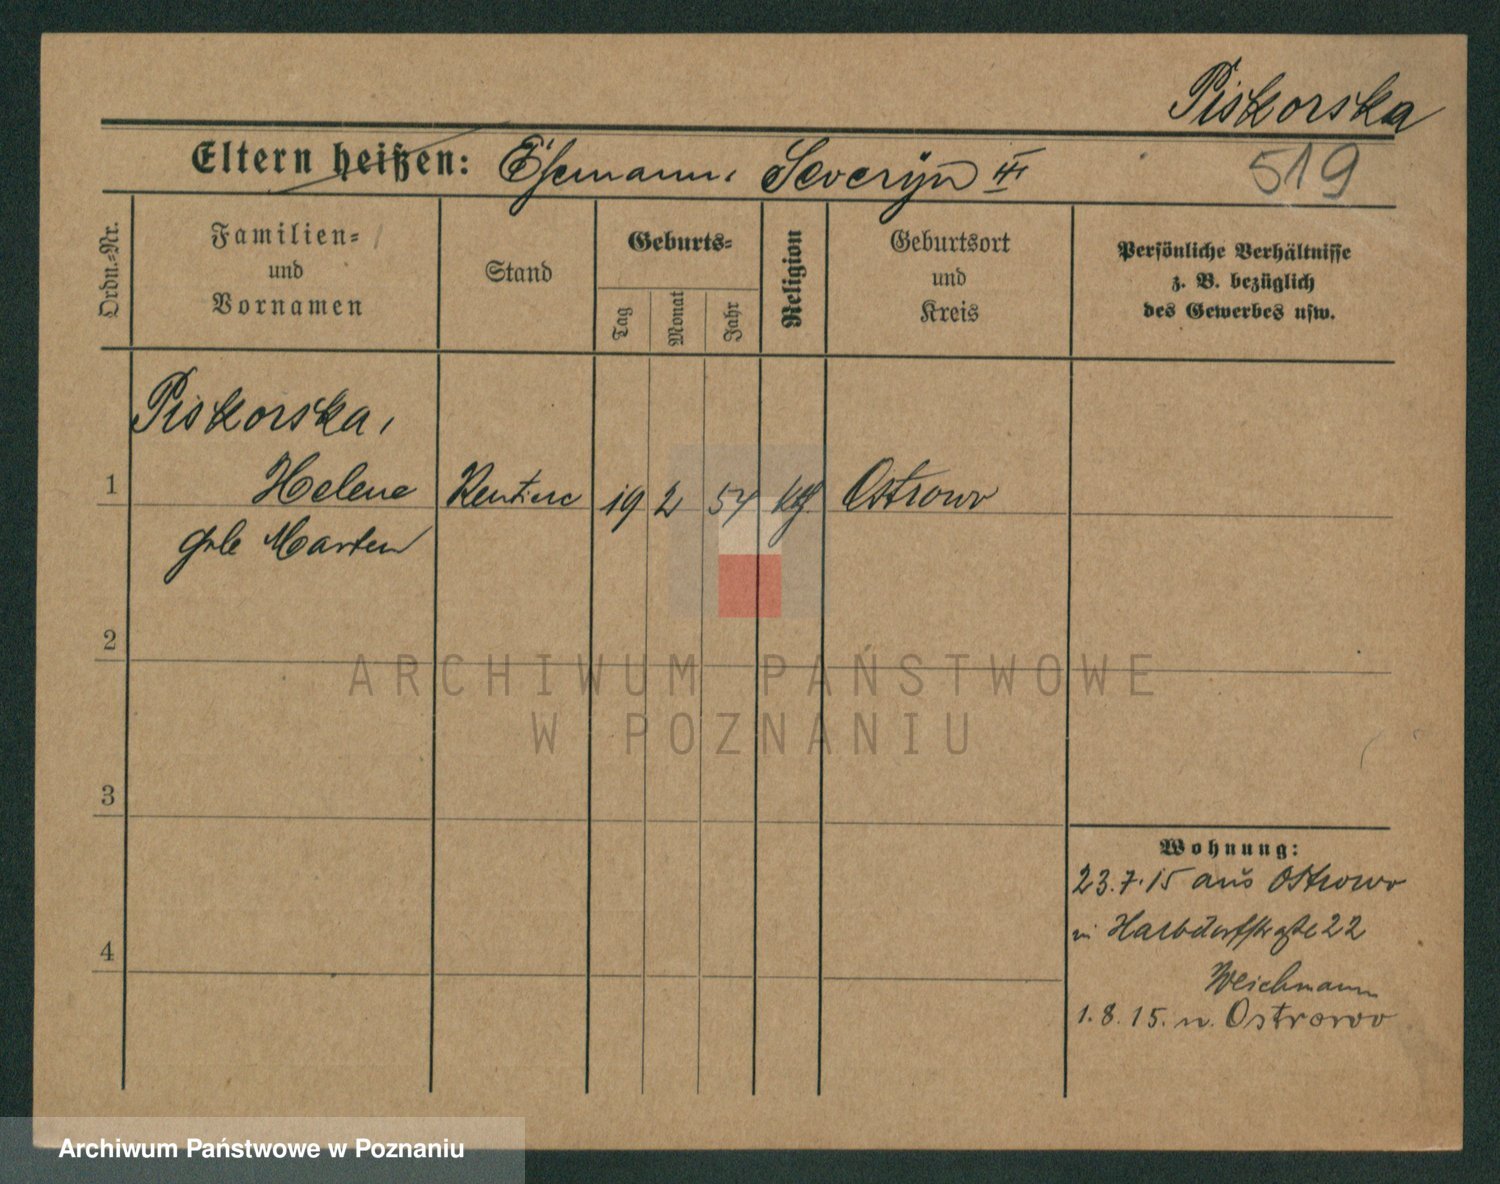 Piskorska
519
Eltern heißen: Ehemann: Severyn III
Ordn.-Nr.
Familien-
und
Vornamen
Stand
Geburts-
Tag
Monat
Jahr
Religion
Geburtsort
und
Kreis
Persönliche Verhältnisse
z. B. bezüglich
des Gewerbes usw.
Piskorska,
1 Helene Rentiere 19 2 54 kth. Ostrowo
geb Marten
2
3
4
Wohnung:
23.7.15 aus Ostrowo
in Halbdorfstraße 22
Weichmann
1.8.15. n. Ostrowo
ARCHIWUM PAŃSTWOWE
W POZNANIU
Archiwum Państwowe w Poznaniu